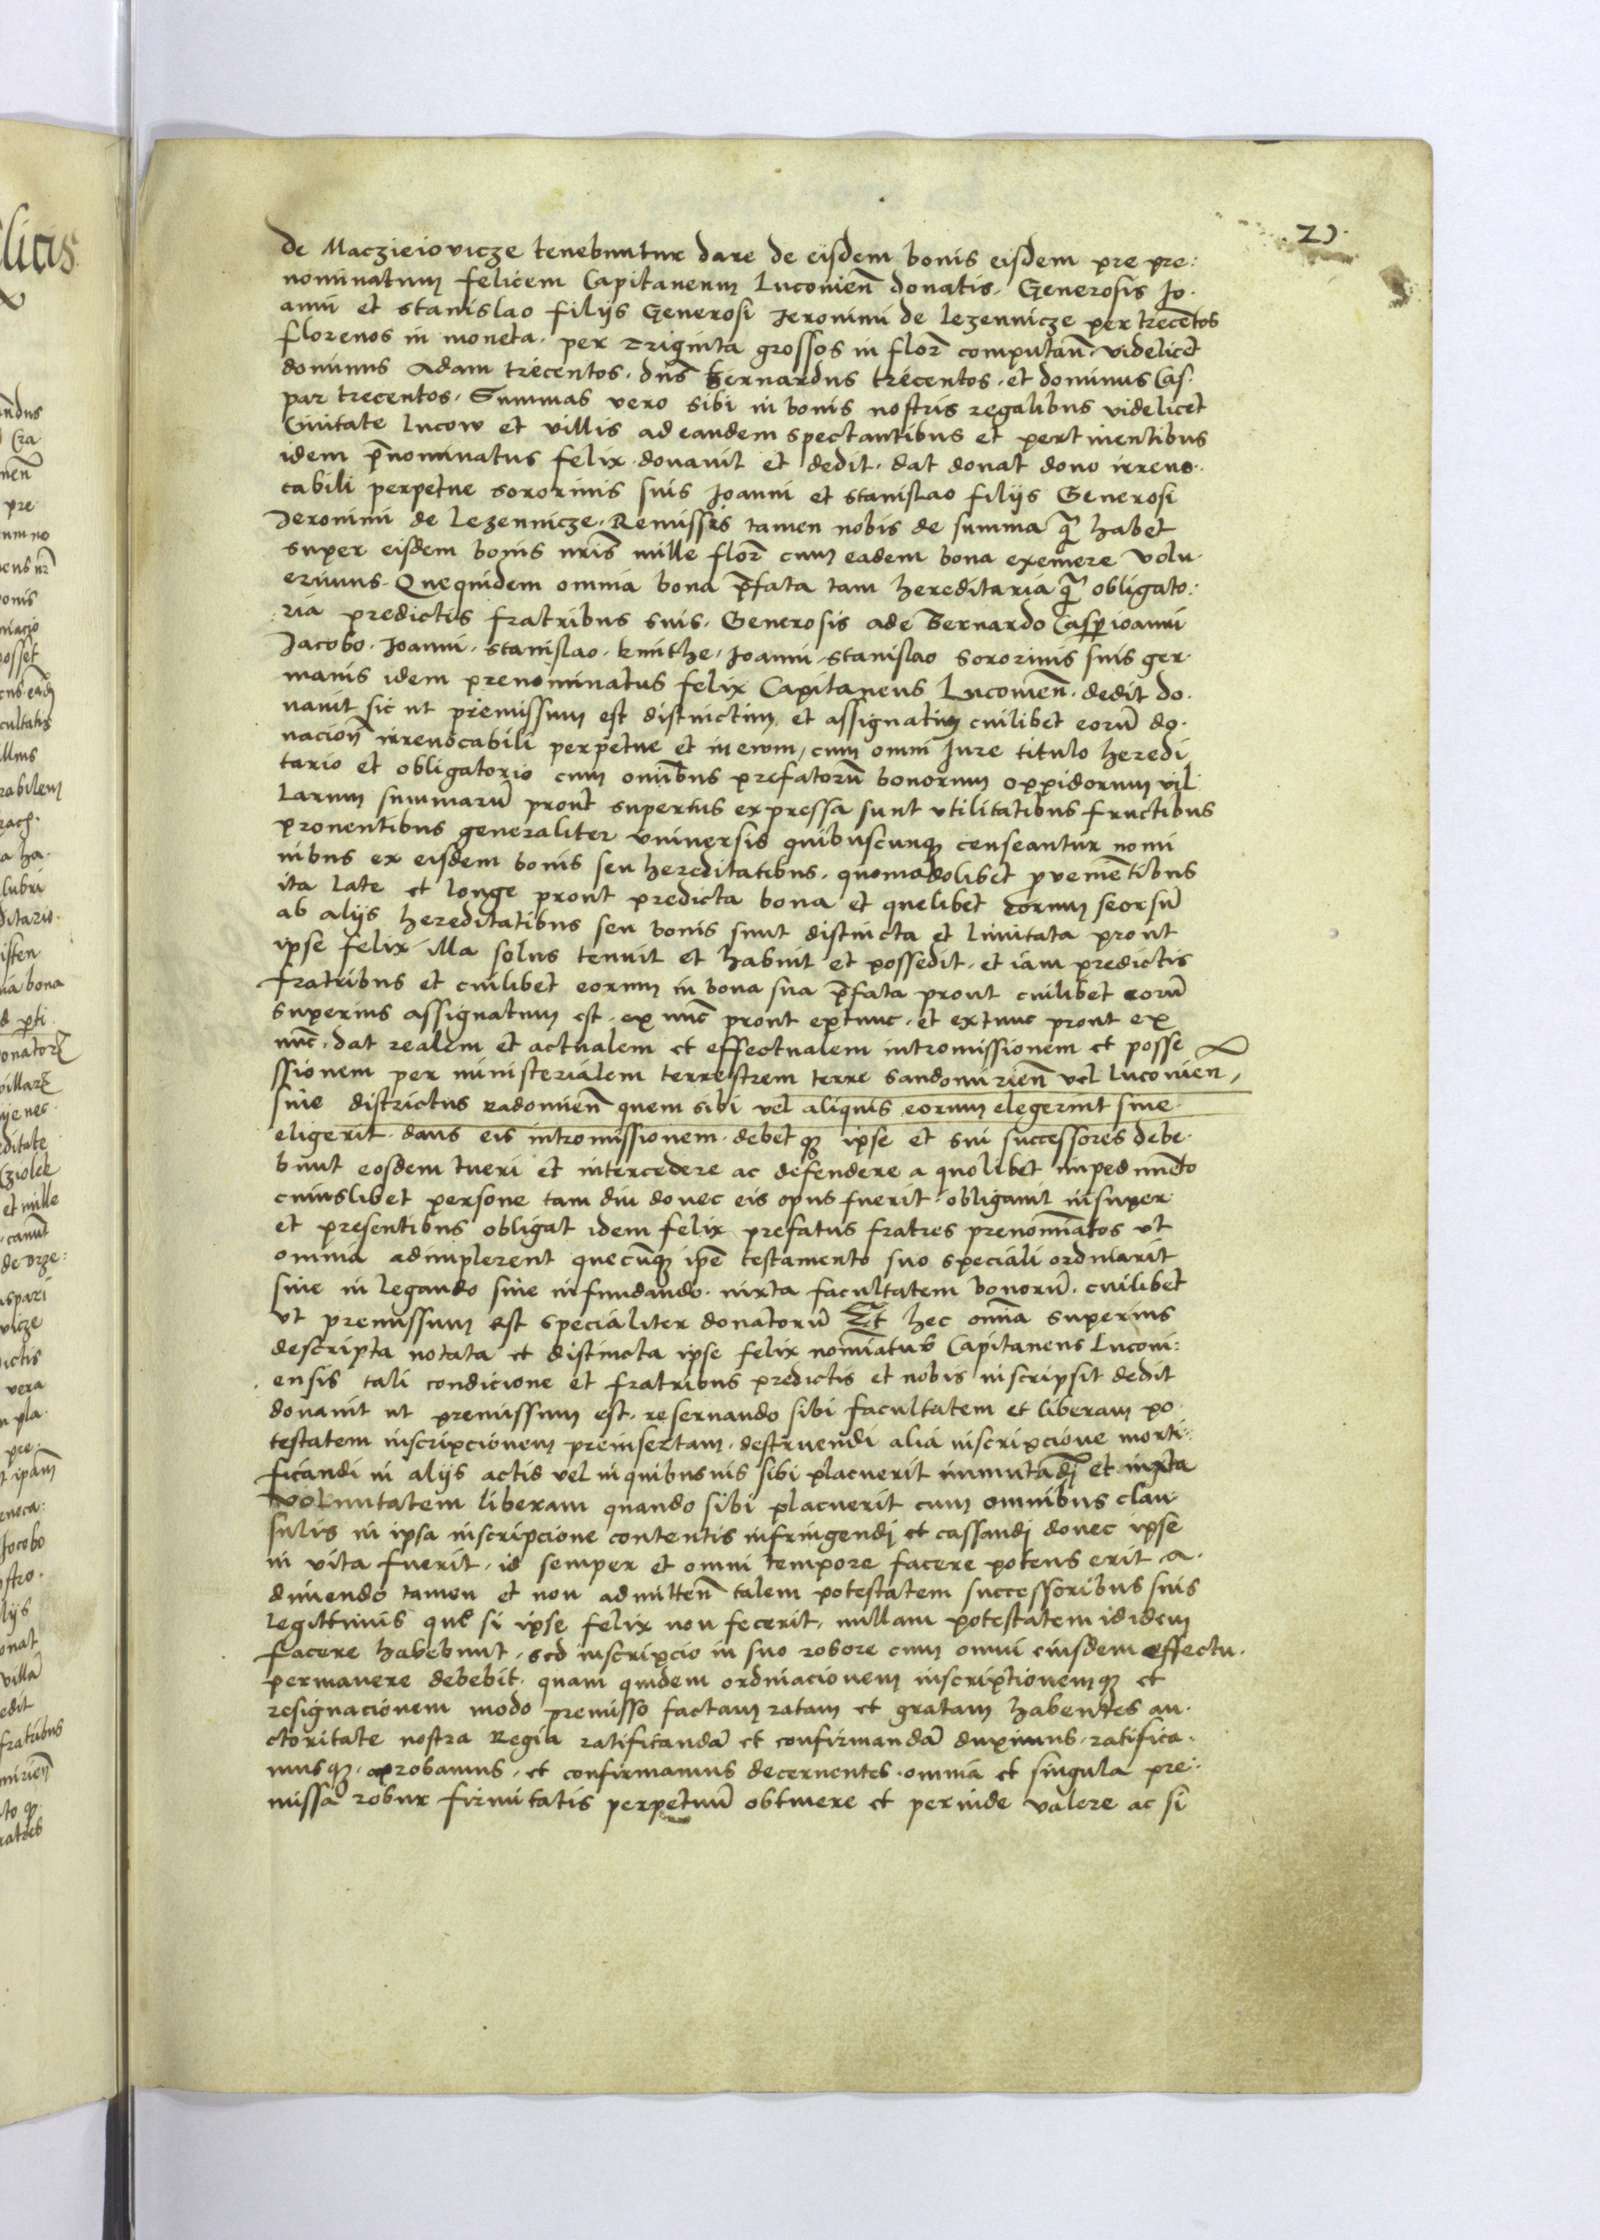 21.
de Maczieiovicze tenebuntur dare de eisdem bonis eisdem per pre:
nominatum felicem Capitaneum Lucouien̄ donatis. Generosis Jo.
anni et stanislao filijs Generosi Jeronimi de lezennicze per trecentos
florenos in moneta. per triginta grossos in flor̄ computan̄. videlicet
dominus Adam trecentos. dn̄s Bernardus trecentos. et dominus Cas.
par trecentos. Summas vero sibi in bonis nostris regalibus videlicet
Ciuitate lucow et villis ad eandem spectantibus et pertinentibus
idem p̄nominatus felix donauit et dedit. dat donat dono irreuo.
cabili perpetue sororinis suis Joanni et stanislao filijs Generosi
Jeronimi de lezennicze. Remissis tamen nobis de summa quā habet
super eisdem bonis nr̄is mille flor̄ cum eadem bona exemere volu.
erimus. Quequidem omnia bona p̄fata tam hereditaria quā obligato:
ria predictis fratribus suis. Generosis ade Bernardo Casp̄ ioanni
Jacobo. Joanni. stanislao. kmithe. Joanni. stanislao sororinis suis ger.
manis idem prenominatus felix Capitaneus Lucouien̄. dedit do.
nauit sic ut premissum est distinctim et assignatim cuilibet eorū do.
nacion̄ irreuocabili perpetue et in ewm, cum omni Jure titulo heredi
tario et obligatorio cum omībus prefatorū bonorum oppidorum vil
larum summarū prout superius expressa sunt vtilitatibus fructibus
prouentibus generaliter vniuersis quibuscunq; censeantur nomi
nibus ex eisdem bonis seu hereditatibus. quomodolibet prouenientibus
ita late et longe prout predicta bona et quelibet eorum seorsū
ab alijs hereditatibus seu bonis sunt distincta et limitata prout
ipse felix illa solus tenuit et habuit et possedit. et iam predictis
fratribus et cuilibet eorum in bona sua p̄fata prout cuilibet eorū
superius assignatum est. ex nūc prout extunc. et extunc prout ex
nūc. dat realem et actualem et effectualem intromissionem et posse
ssionem per ministerialem terrestrem terre sandomirien̄ vel lucouien,
siue districtus radomien̄ quem sibi vel aliquis eorum elegerint siue
eligerit. dans eis intromissionem. debetq; ipse et sui successores debe.
bunt eosdem tueri et intercedere ac defendere a quolibet impedimēto
cuiuslibet persone tam diu donec eis opus fuerit. obligauit insuper
et presentibus obligat idem felix prefatus fratres prenomīatos vt
omnia adimplerent quecūq; ip̄e testamento suo speciali ordinarit
siue in legando siue in fundando. iuxta facultatem bonorū. cuilibet
vt premissum est specialiter donatorū Et hec omīa superius
descripta notata et distincta ipse felix nomīatus Capitaneus Lucoui:
ensis tali condicione et fratribus predictis et nobis inscripsit dedit
donauit ut premissum est. reseruando sibi facultatem et liberam po.
testatem inscripcionem preinsertam. destruendi alia inscripcione morti:
ficandi in alijs actis vel in quibusuis sibi placuerit immutādi et iuxta
voluntatem liberam quando sibi placuerit cum omnibus clau.
sulis in ipsa inscripcione contentis infringendi et cassandi donec ipse
in vita fuerit. id semper et omni tempore facere potens erit. A.
dimendo tamen et non admitten̄ talem potestatem successoribus suis
legittimis que si ipse felix non fecerit. nullam potestatem id idem
facere habebunt. sed inscripcio in suo robore cum omni eiusdem effectu.
permanere debebit. quam quidem ordinacionem inscriptionemq; et
resignacionem modo premisso factam ratam et gratam habentes au.
ctoritate nostra Regia ratificandā et confirmandā duximus. ratifica.
musq;. aprobamus. et confirmamus decernentes. omnia et singula pre:
missa robur firmitatis perpetuū obtinere et perinde valere ac si